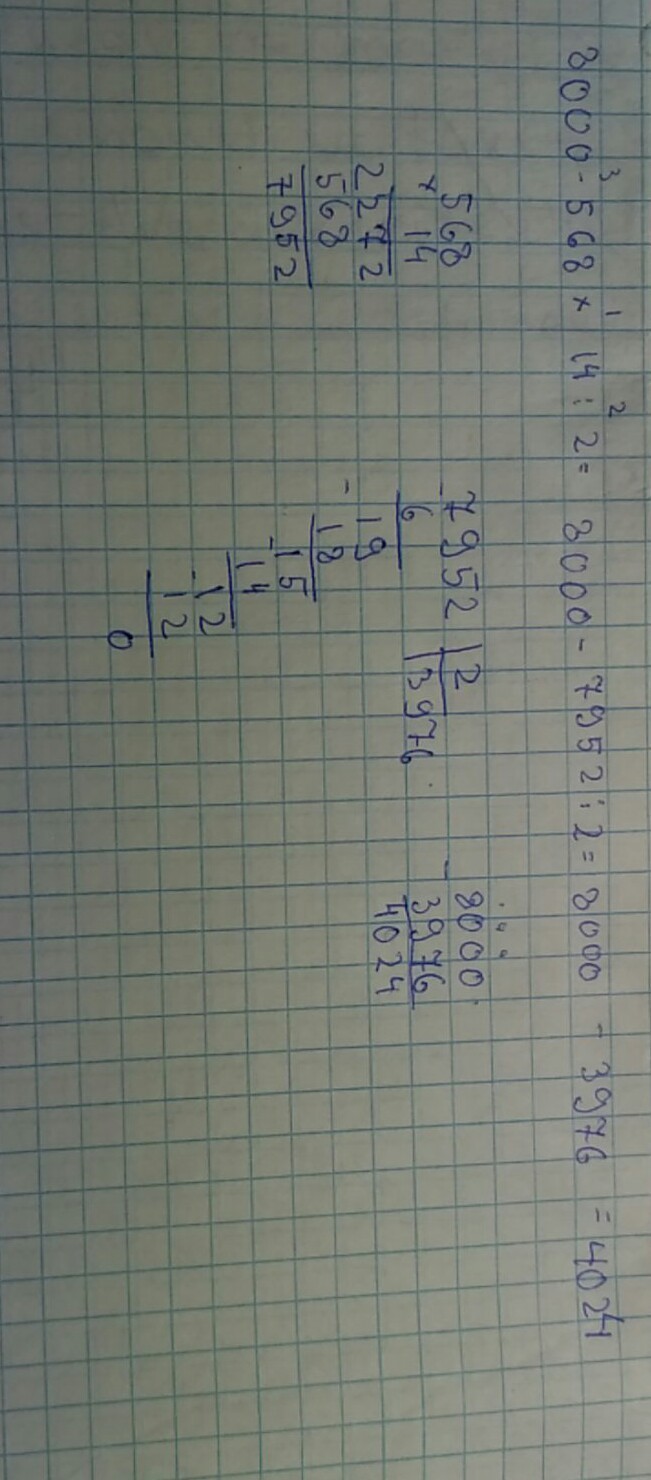 8000 - 568 × 14 : 2 = 8000 - 7952 : 2 = 8000 - 3976 = 4024
3 1 2
568
× 14
2272
568
7952
- 7952 | 2
6 | 3976
- 19
18
- 15
14
- 12
12
0
- 8000
3976
4024